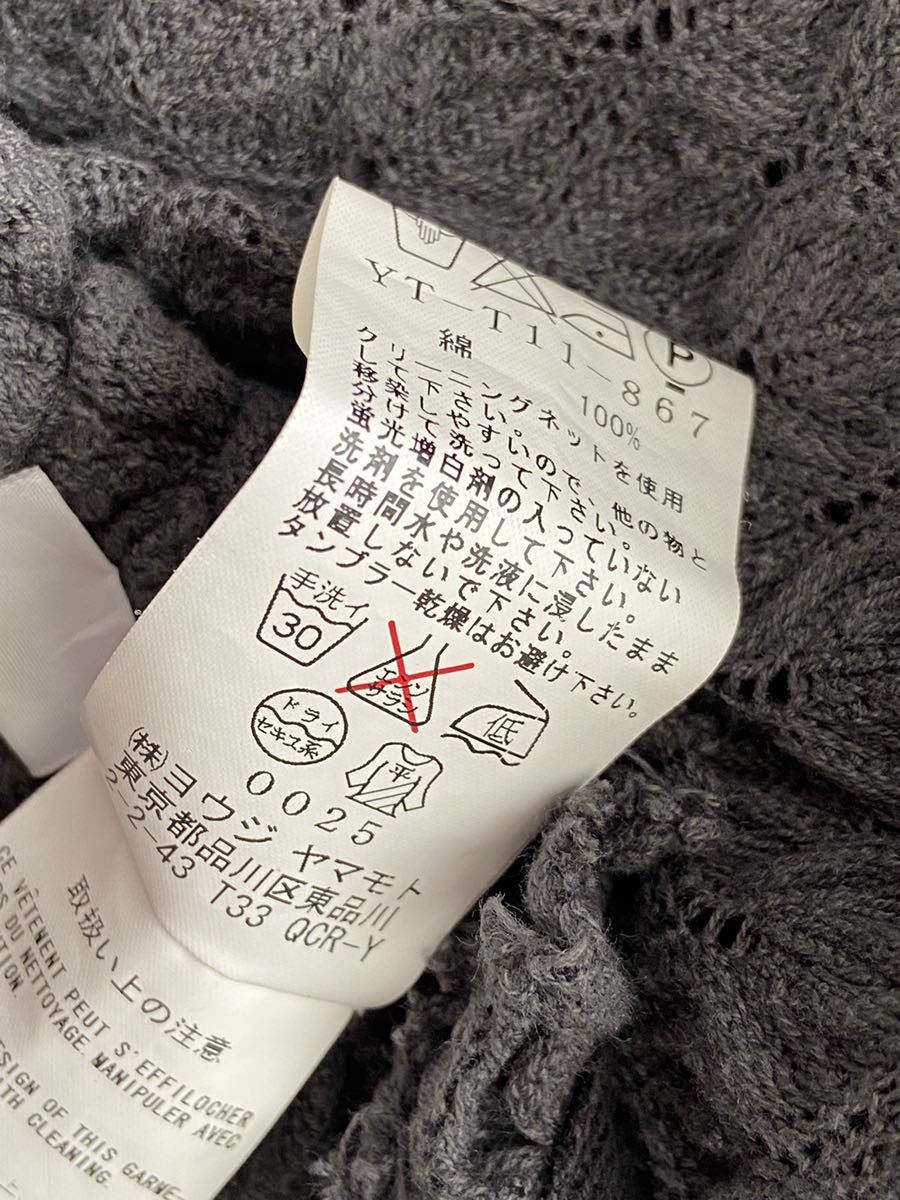 P
YT-T11-867
綿 100%
クリーニングネットを使用
して下さい。
移染しやすいので、他の物と
分けて洗って下さい。
蛍光増白剤の入っていない
洗剤を使用して下さい。
長時間水や洗液に浸したまま
放置しないで下さい。
タンブラー乾燥はお避け下さい。
手洗イ
30
エンソ
サラシ
低
ドライ
セキユ系
平
0025
(株)ヨウジ ヤマモト
東京都品川区東品川
2-2-43 T33 QCR-Y
取扱い上の注意
CE VÊTEMENT PEUT S'EFFILOCHER
DU NETTOYAGE. MANIPULER AVEC
OF THIS GARME-
WITH CLEANING.